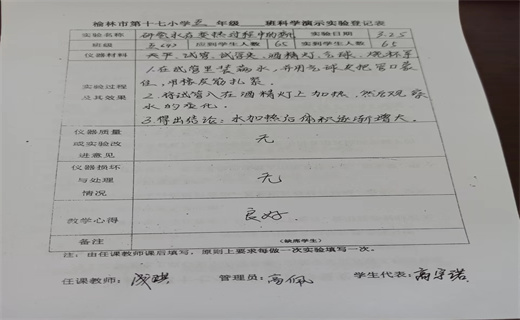 榆林市第十七小学五年级 班科学演示实验登记表
实验名称 研究水在变热过程中的 实验日期 3.25
班级 应到学生人数 65 实到学生人数 65
仪器材料 天平、试管、试管夹、酒精灯、气球、烧杯等
实验过程及其效果
1.在试管里装满水,并用气球皮把管口套住,用橡皮筋扎紧。
2.将试管放在酒精灯上加热,然后观察水的变化。
3.得出结论:水加热后体积逐渐增大。
仪器质量或实验改进意见 无
仪器损坏与处理情况 无
教学心得 良好.
备注 (缺席学生)
注:由任课教师课后填写,原则上要求每做一次实验填写一次。
任课教师: 管理员:高佩 学生代表:高